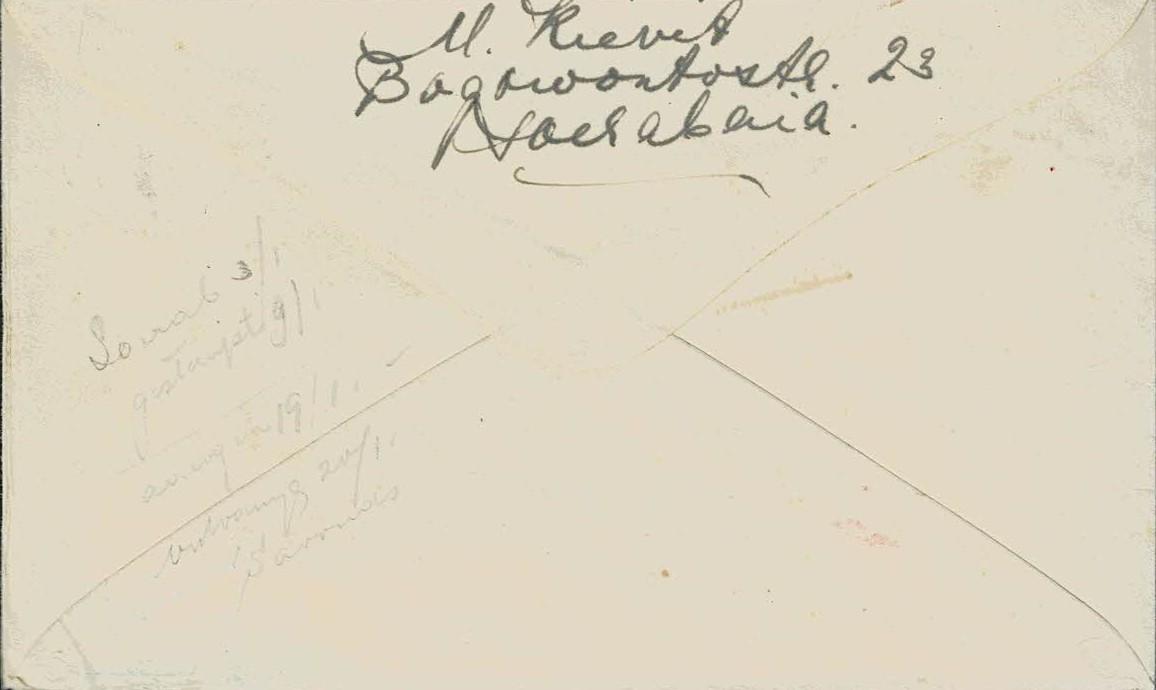 M. Kievit
Bogowontostr. 23
Soerabaia.
Soerab 3/1
gestempeld 9/1
aang in 19/1. -
ontvangst 20/1.
's avonds